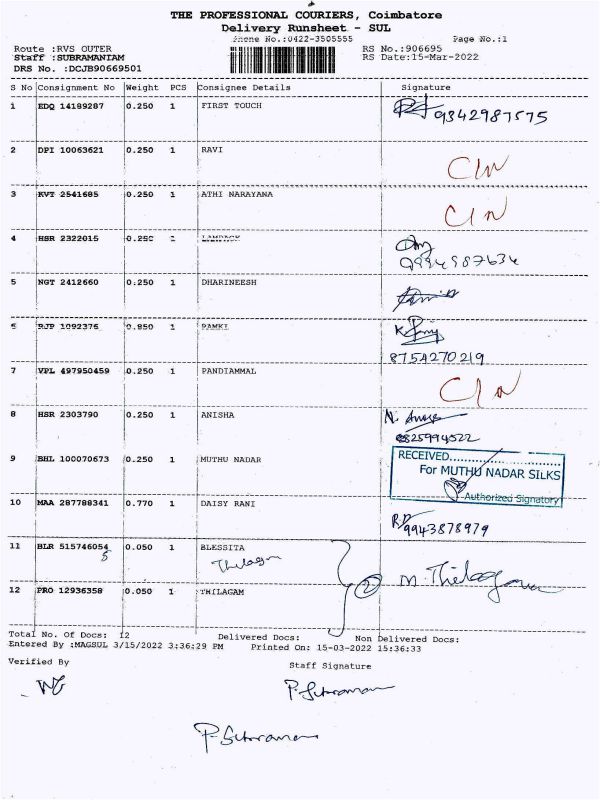 THE PROFESSIONAL COURIERS, Coimbatore
Delivery Runsheet - SUL
Phone No.:0422-3505555 Page No.:1
Route :RVS OUTER RS No.:906695
Staff :SUBRAMANIAM RS Date:15-Mar-2022
DRS No. :DCJB90669501
S No Consignment No Weight PCS Consignee Details Signature
1 EDQ 14189287 0.250 1 FIRST TOUCH 9342987575
2 DPI 10063621 0.250 1 RAVI C/N
3 KVT 2541685 0.250 1 ATHI NARAYANA C/N
4 HSR 2322015 0.250 9994987634
5 NGT 2412660 0.250 1 DHARINEESH
6 RJP 1092376 0.850 1 PAMKI
8754270219
7 VPL 497950459 0.250 1 PANDIAMMAL C/N
8 HSR 2303790 0.250 1 ANISHA
9 BHL 100070673 0.250 1 MUTHU NADAR
RECEIVED
For MUTHU NADAR SILKS
Authorized Signatory
10 MAA 287788341 0.770 1 DAISY RANI
9943878979
11 BLR 515746054 0.050 1 BLESSITA
5 Thilagam
2 M. Thilagam
12 PRO 12936358 0.050 1 THILAGAM
Total No. Of Docs: 12 Delivered Docs: Non Delivered Docs:
Entered By :MAGSUL 3/15/2022 3:36:29 PM Printed On: 15-03-2022 15:36:33
Verified By Staff Signature